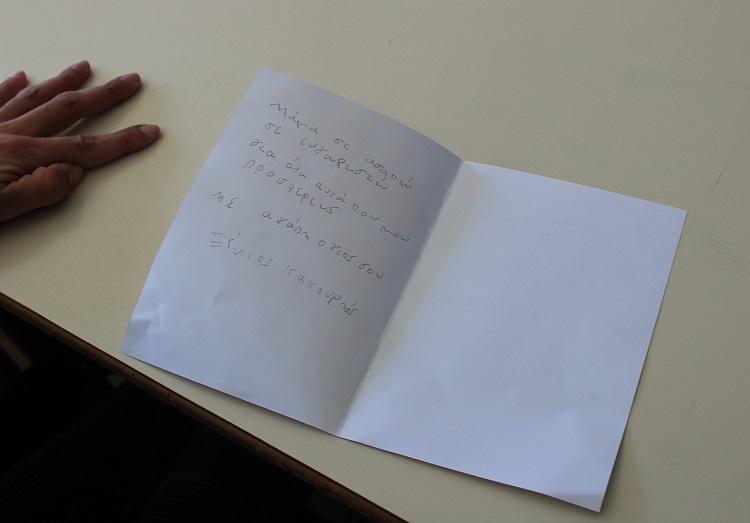 Μάμα σε αγαπώ
σε ευχαριστώ
για όλα αυτά που μου
προσφέρεις
με αγάπη ο γιος σου
Ξένιος κακουρής